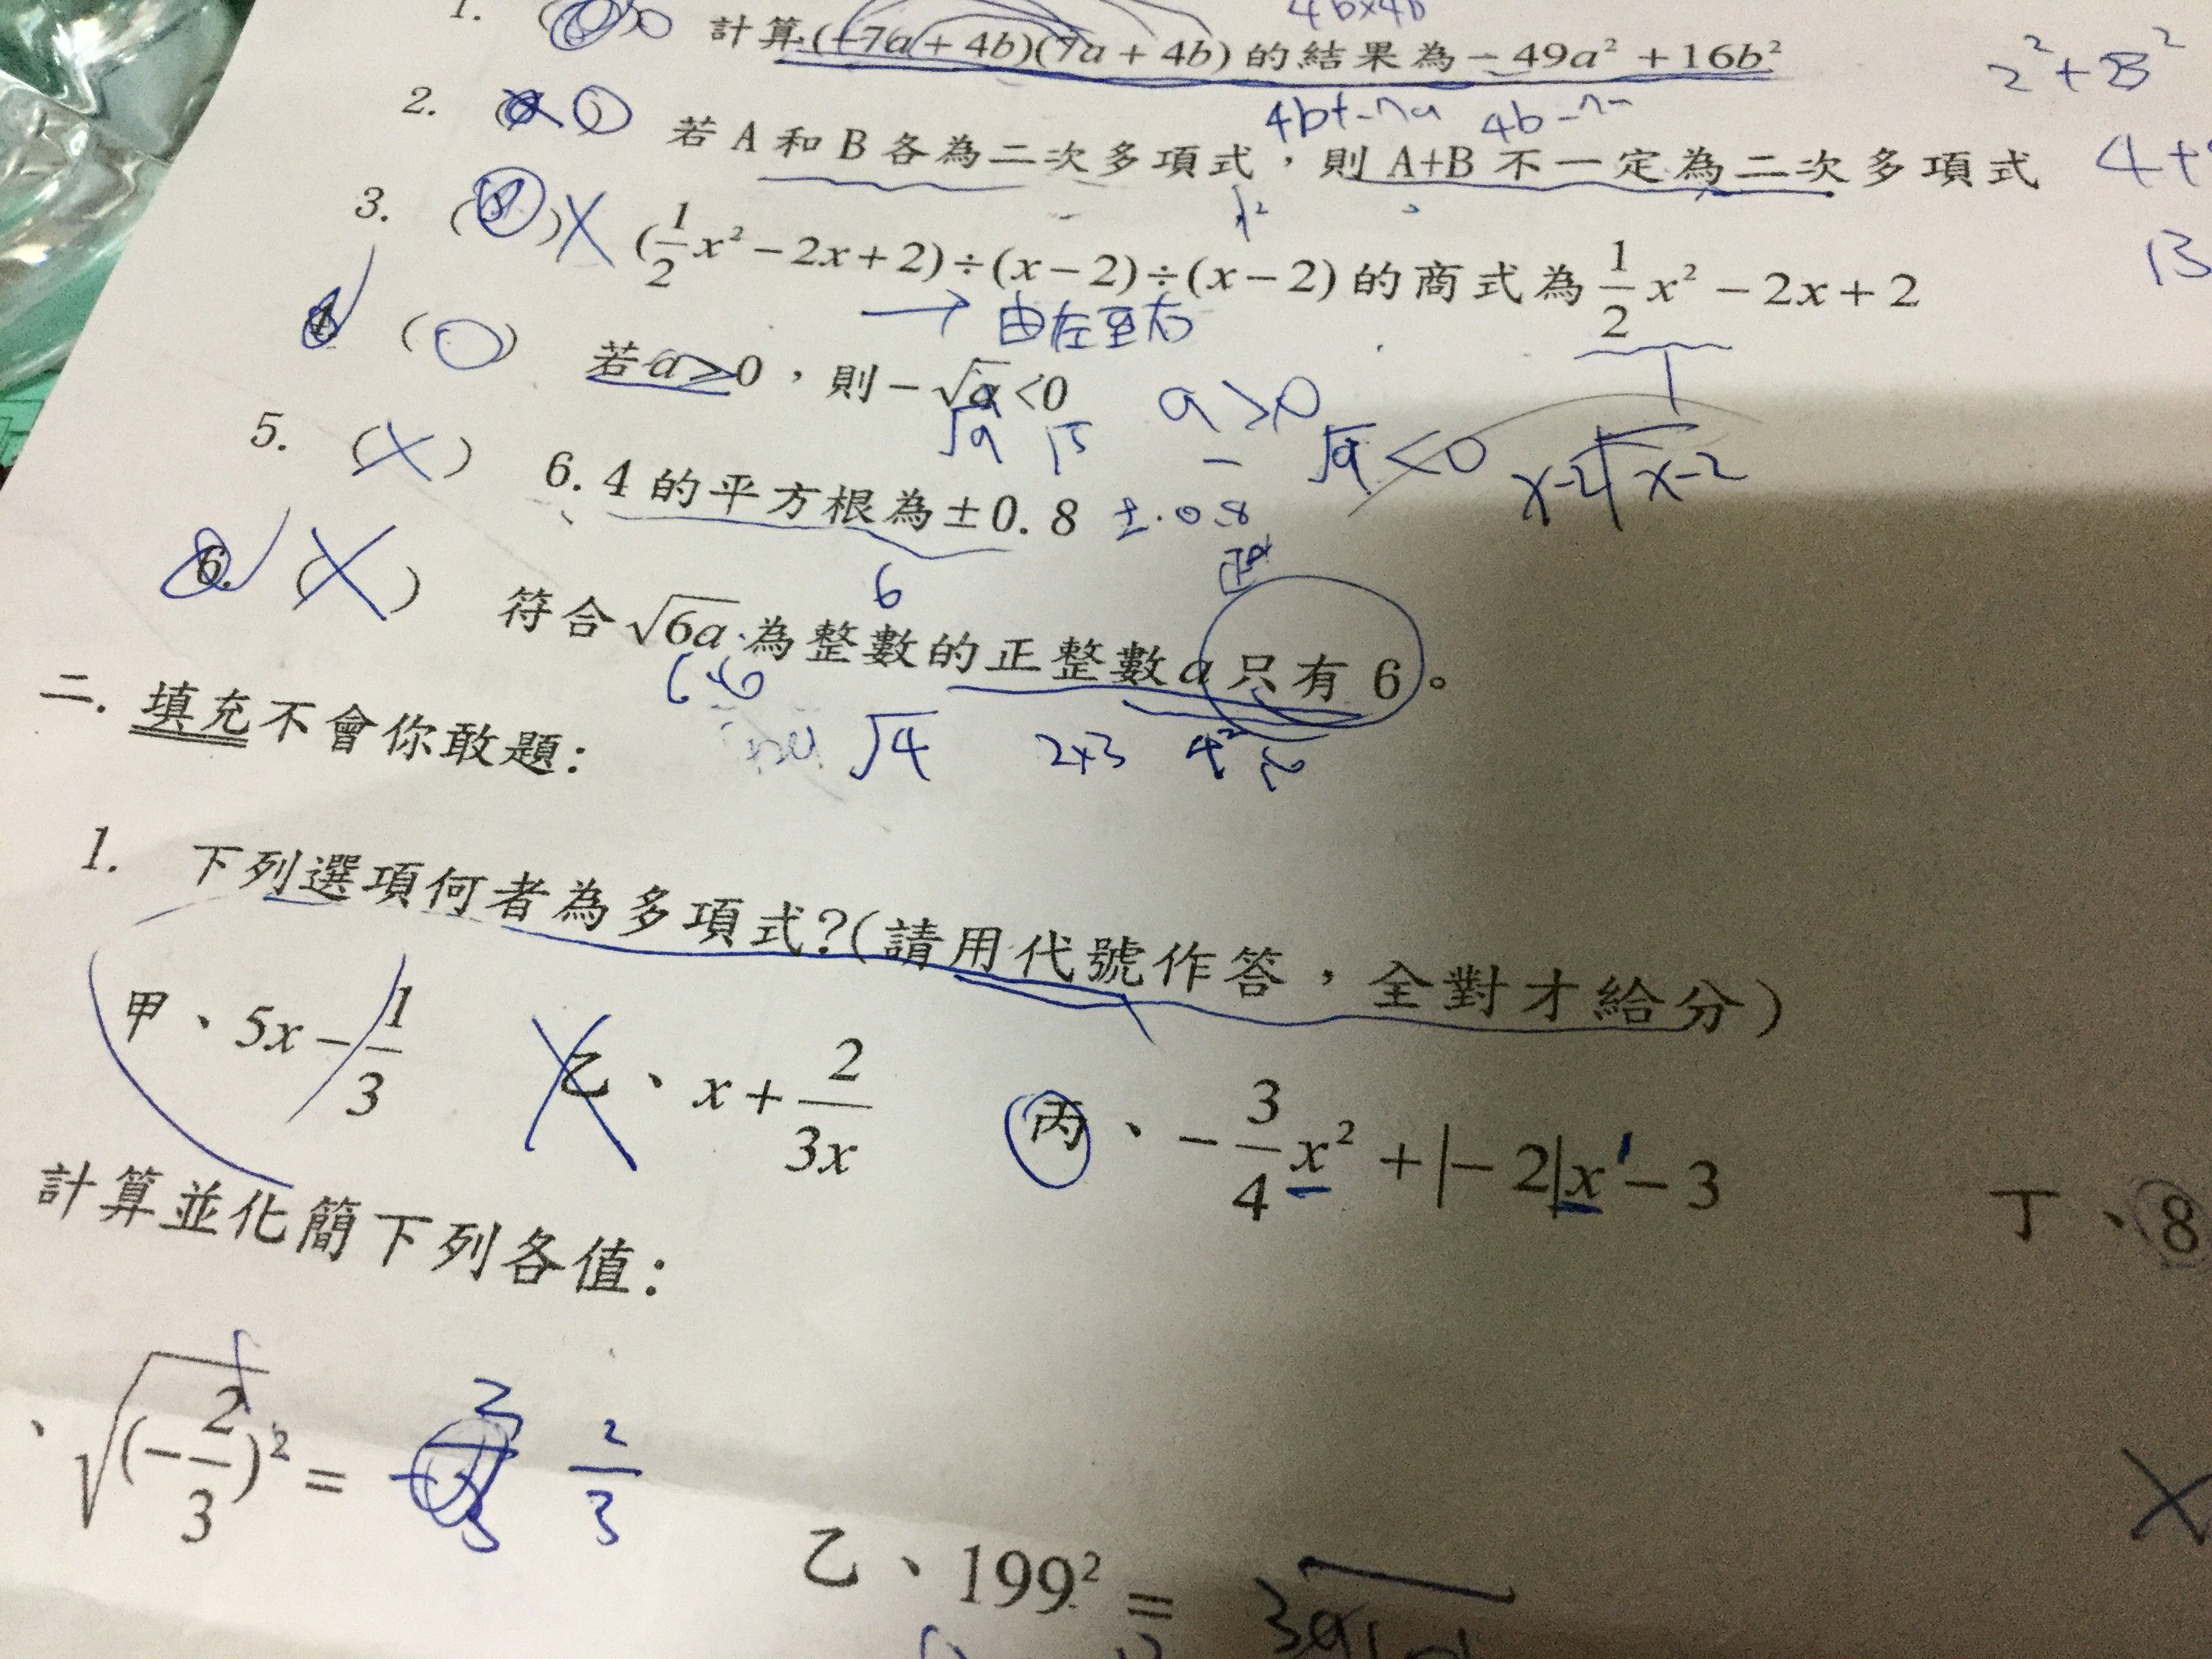 1. 計算(-7a+4b)(7a+4b)的結果為-49a²+16b²
2²+B²
4b+-7a
2. 若A和B各為二次多項式，則A+B不一定為二次多項式
3. ( ) X (1/2 x²-2x+2)÷(x-2)÷(x-2)的商式為1/2 x²-2x+2
13
→ 由左至右
(○) 若a>0，則-√a<0
a>0
-√a<0
x-2 x-2
5. (X) 6.4的平方根為±0.8 ±.0.8
6
6. (X) 符合√6a為整數的正整數a只有6。
6×6
√4 2×3 4²
二. 填充不會你敢題:
1. 下列選項何者為多項式?(請用代號作答，全對才給分)
甲、5x-1/3 乙、x+2/3x 丙、-3/4 x²+|-2|x-3 丁、8
計算並化簡下列各值:
、√(-2/3)²= 2/3
乙、199²=